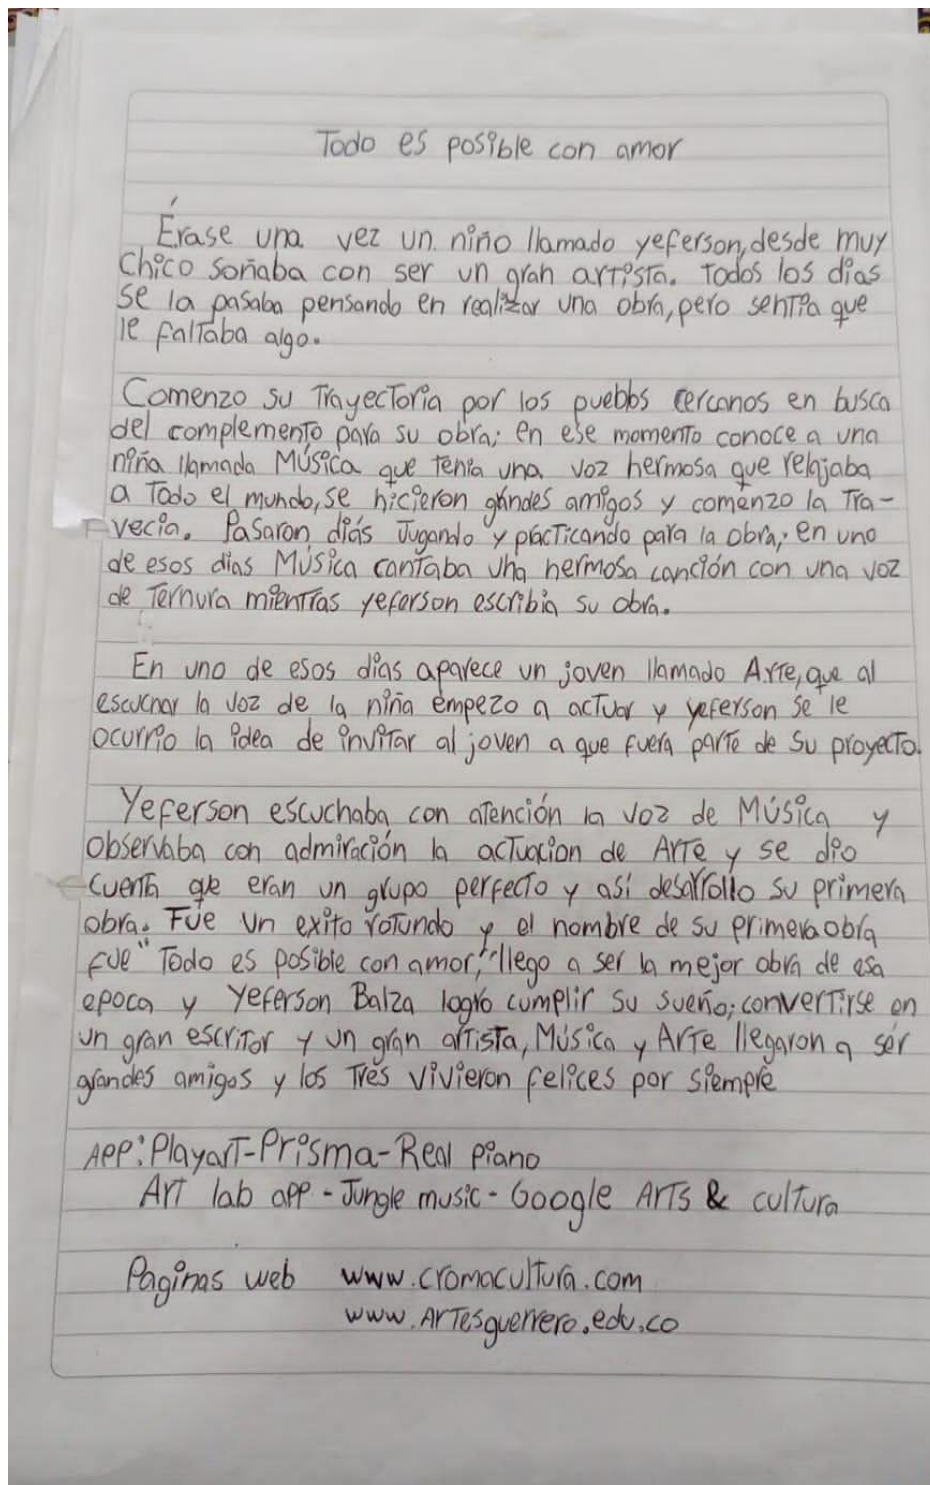 Todo es posible con amor
Érase una vez un niño llamado yeferson, desde muy
Chico soñaba con ser un gran artista. Todos los días
se la pasaba pensando en realizar una obra, pero sentia que
le faltaba algo.
Comenzo su Trayectoria por los pueblos cercanos en busca
del complemento para su obra; en ese momento conoce a una
niña llamada Música que tenia una voz hermosa que relajaba
a Todo el mundo, se hicieron grandes amigos y comenzo la Tra-
vecia. Pasaron días Jugando y practicando para la obra; en uno
de esos dias Música cantaba una hermosa canción con una voz
de Ternura mientras yeferson escribia su obra.
En uno de esos dias aparece un joven llamado Arte, que al
escuchar la voz de la niña empezo a actuar y yeferson se le
ocurrio la idea de invitar al joven a que fuera parte de su proyecto.
Yeferson escuchaba con atención la voz de Música y
observaba con admiración la actuacion de Arte y se dio
cuenta que eran un grupo perfecto y así desarrollo su primera
obra. Fue un exito rotundo y el nombre de su primera obra
fue "Todo es posible con amor," llego a ser la mejor obra de esa
epoca y Yeferson Balza logro cumplir su sueño; convertirse en
un gran escritor y un gran artista, Música y Arte llegaron a ser
grandes amigos y los Tres vivieron felices por siempre
APP: Playart-Prisma-Real Piano
Art lab app - Jungle music - Google Arts & cultura
Paginas web www.cromacultura.com
www.Artesguerrero.edu.co